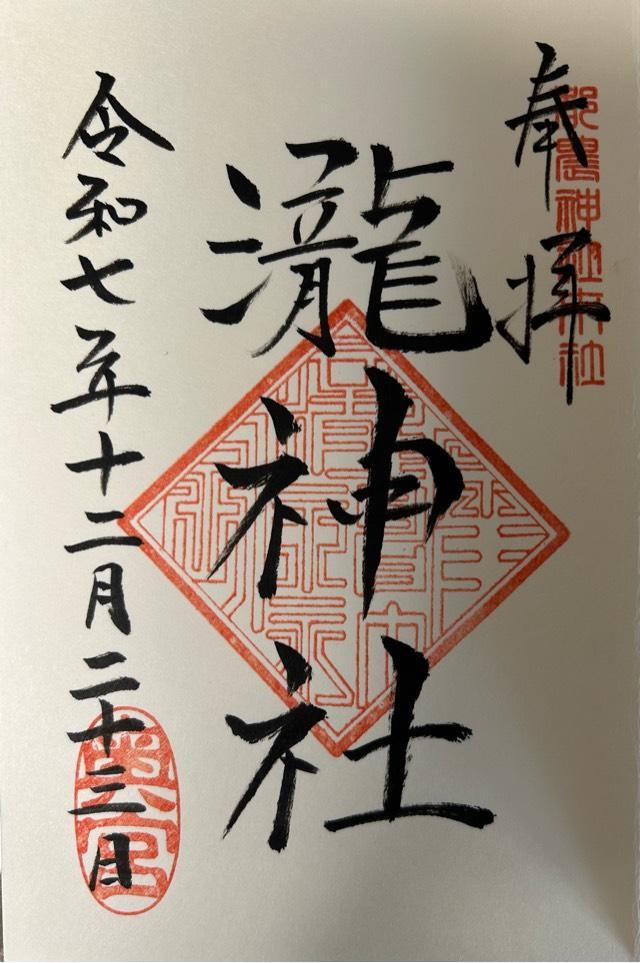 奉拝
都農神社末社
瀧神社
令和七年十二月二十三日